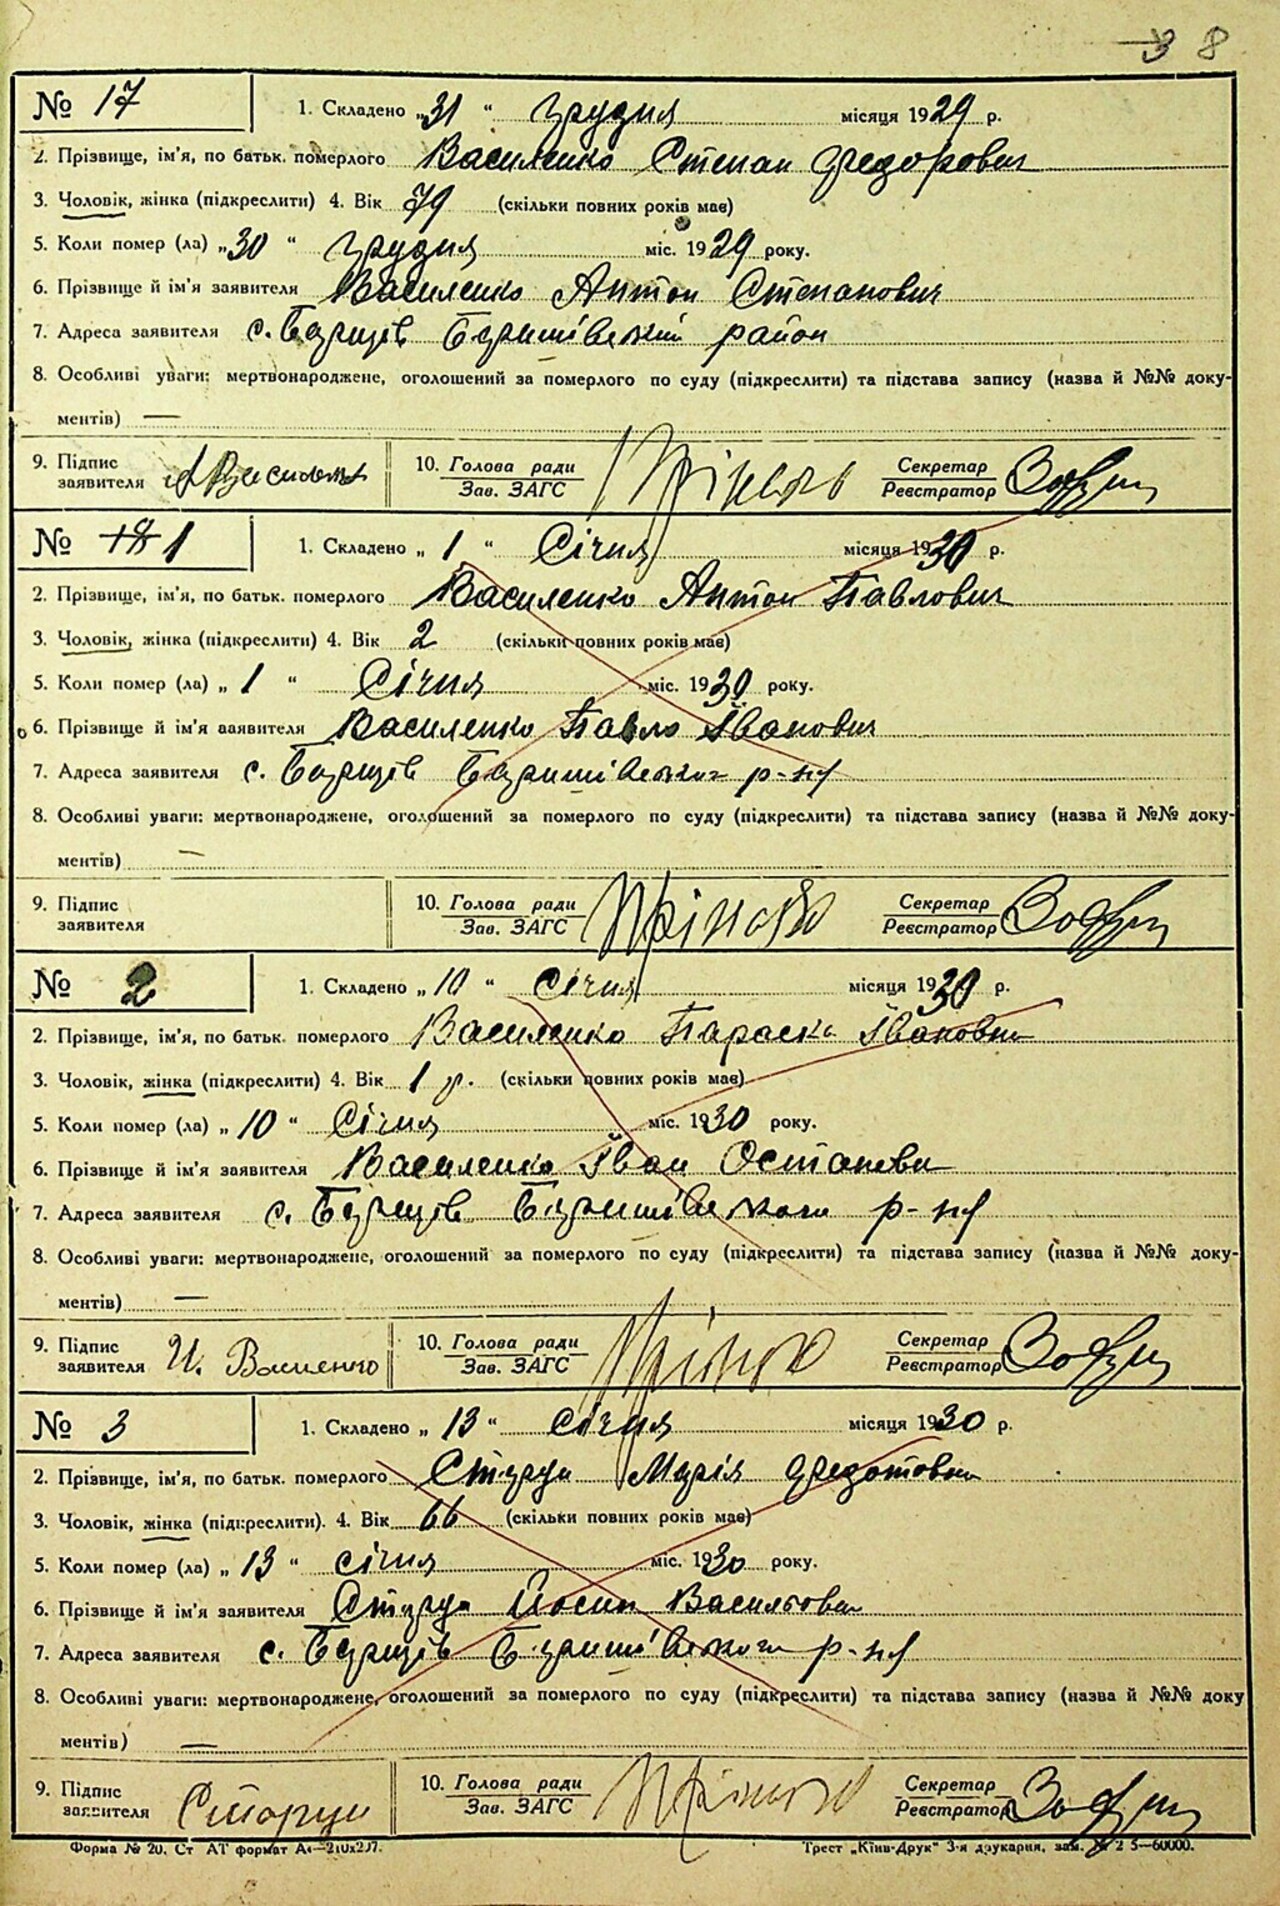 3 8
№ 17 1. Складено „31“ грудня місяця 1929 р.
2. Прізвище, ім'я, по батьк. померлого Василенко Степан Федорович
3. Чоловік, жінка (підкреслити) 4. Вік 79 (скільки повних років має)
5. Коли помер (ла) „30“ грудня міс. 1929 року.
6. Прізвище й ім'я заявителя Василенко Антон Степанович
7. Адреса заявителя с. район
8. Особливі уваги: мертвонароджене, оголошений за померлого по суду (підкреслити) та підстава запису (назва й №№ доку-
ментів) —
9. Підпис заявителя 10. Голова ради Зав. ЗАГС Секретар Реєстратор
№ 18 1 1. Складено „1“ Січня місяця 1930 р.
2. Прізвище, ім'я, по батьк. померлого Василенко Антон Павлович
3. Чоловік, жінка (підкреслити) 4. Вік 2 (скільки повних років має)
5. Коли помер (ла) „1“ Січня міс. 1930 року.
6. Прізвище й ім'я заявителя Василенко Павло Іванович
7. Адреса заявителя с. р-ну
8. Особливі уваги: мертвонароджене, оголошений за померлого по суду (підкреслити) та підстава запису (назва й №№ доку-
ментів) —
9. Підпис заявителя 10. Голова ради Зав. ЗАГС Секретар Реєстратор
№ 2 1. Складено „10“ Січня місяця 1930 р.
2. Прізвище, ім'я, по батьк. померлого Василенко Параска Івановна
3. Чоловік, жінка (підкреслити) 4. Вік 1 р. (скільки повних років має)
5. Коли помер (ла) „10“ Січня міс. 1930 року.
6. Прізвище й ім'я заявителя Василенко Іван
7. Адреса заявителя с. р-ну
8. Особливі уваги: мертвонароджене, оголошений за померлого по суду (підкреслити) та підстава запису (назва й №№ доку-
ментів) —
9. Підпис заявителя И. Василенко 10. Голова ради Зав. ЗАГС Секретар Реєстратор
№ 3 1. Складено „13“ січня місяця 1930 р.
2. Прізвище, ім'я, по батьк. померлого Марія Федотовна
3. Чоловік, жінка (підкреслити). 4. Вік 66 (скільки повних років має)
5. Коли помер (ла) „13“ січня міс. 1930 року.
6. Прізвище й ім'я заявителя Йосип Васильович
7. Адреса заявителя с. р-ну
8. Особливі уваги: мертвонароджене, оголошений за померлого по суду (підкреслити) та підстава запису (назва й №№ доку
ментів) —
9. Підпис заявителя 10. Голова ради Зав. ЗАГС Секретар Реєстратор
Форма № 20. Ст АТ формат А4—210х297. Трест „Київ-Друк“ 3-я друкарня, зам. № 2 5—60000.